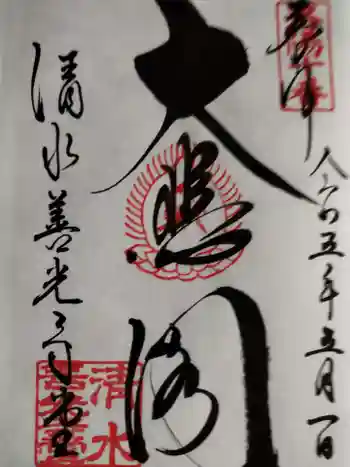 奉拝
令和五年五月一日
大悲閣
清水善光寺堂
清水